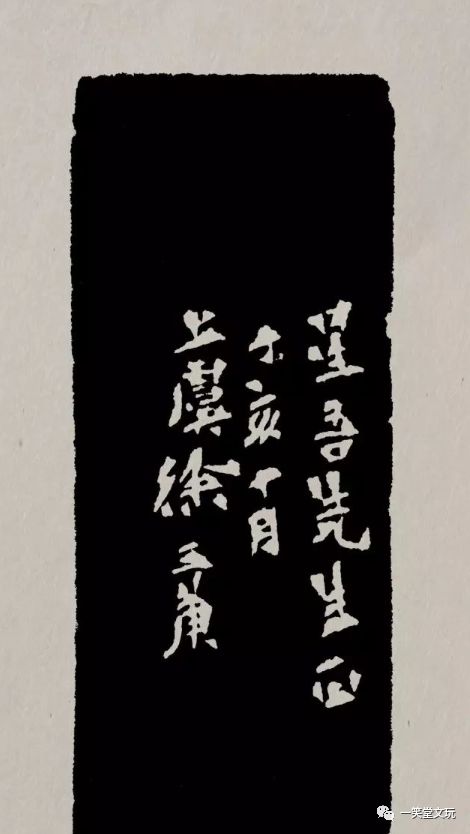 吾先生正
亥十月
上虞徐三庚
一笑堂文玩